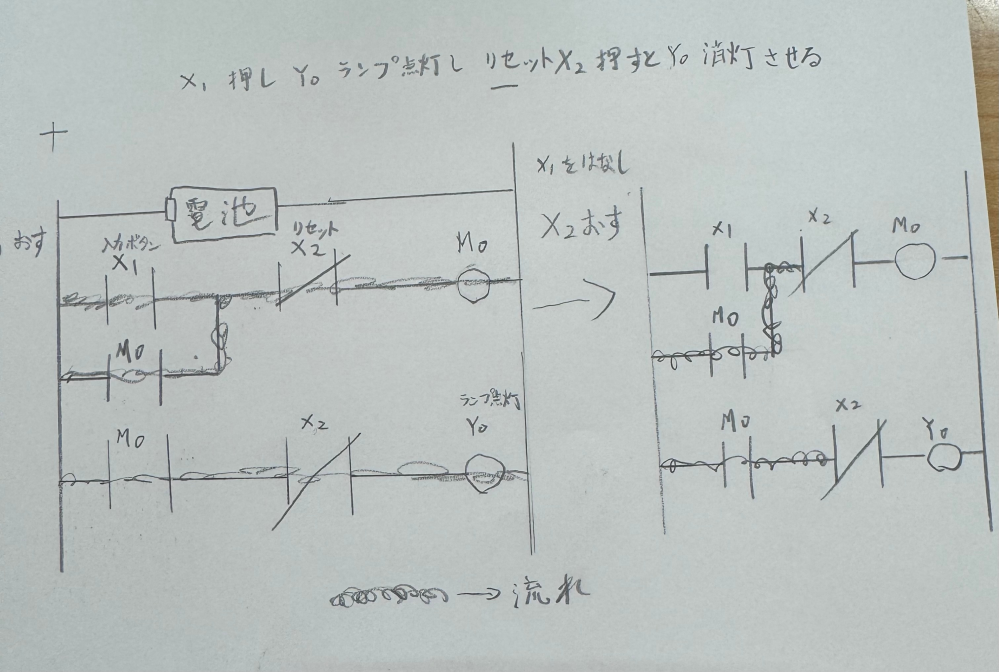 X1 押し Y0 ランプ点灯し リセットX2 押すと Y0 消灯させる
+
電池
おす
入力ボタン
X1
リセット
X2
M0
M0
M0
X2
ランプ点灯
Y0
X1をはなし
X2おす
X1
X2
M0
M0
M0
X2
Y0
→流れ